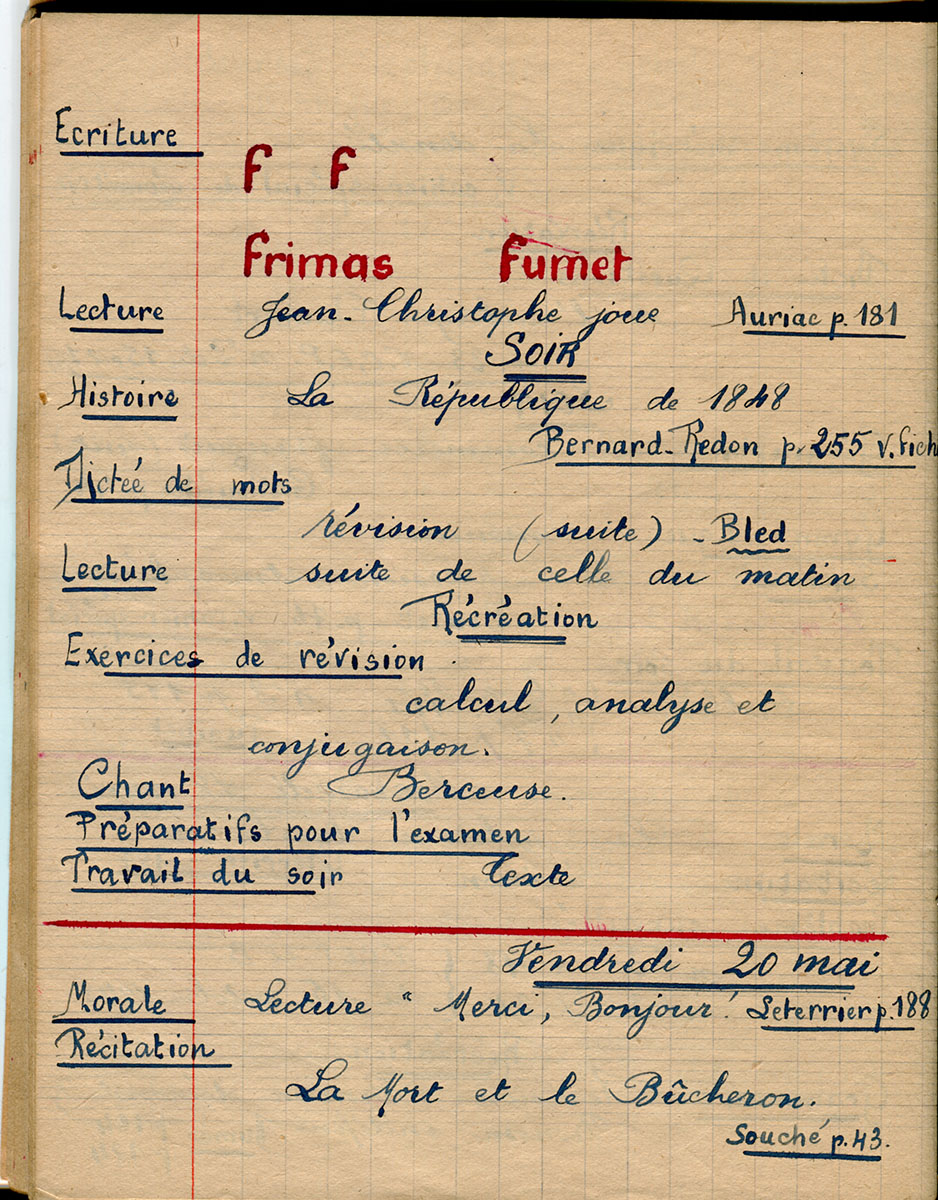 Ecriture
F F
Frimas Fumet
Lecture Jean-Christophe joue Auriac p. 181
SOIR
Histoire La République de 1848
Bernard-Redon p. 255 v. fich
Dictée de mots
révision (suite) - Bled
Lecture suite de celle du matin
Récréation
Exercices de révision.
calcul, analyse et
conjugaison.
Chant Berceuse.
Préparatifs pour l'examen
Travail du soir Texte
Vendredi 20 mai
Morale Lecture " Merci, Bonjour! Leterrier p. 188
Récitation
La Mort et le Bûcheron.
Souché p. 43.